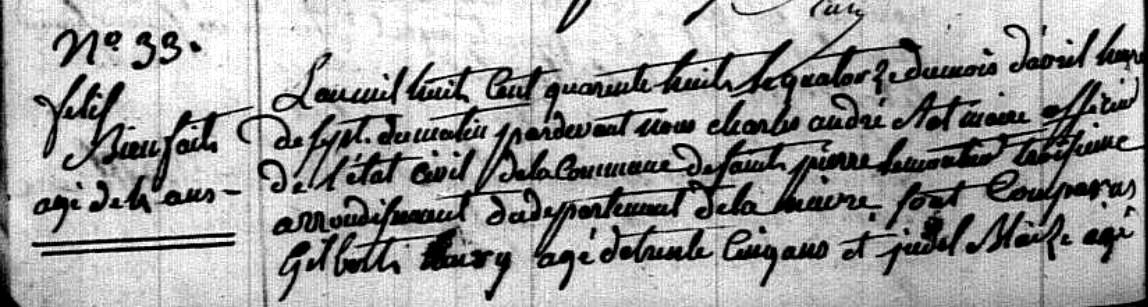 N° 33.
Bienfait
agé de 4 ans
L'an mil huit Cent quarente huit le quatorze du mois d'avril heure
de sept. du matin pardevant nous charles andré maire officier
de l'état civil de la Commune de saint pierre lemoutier troisieme
arrondissement du departement de la nievre sont Comparus
Gilbert agé de trente Cinq ans et agé